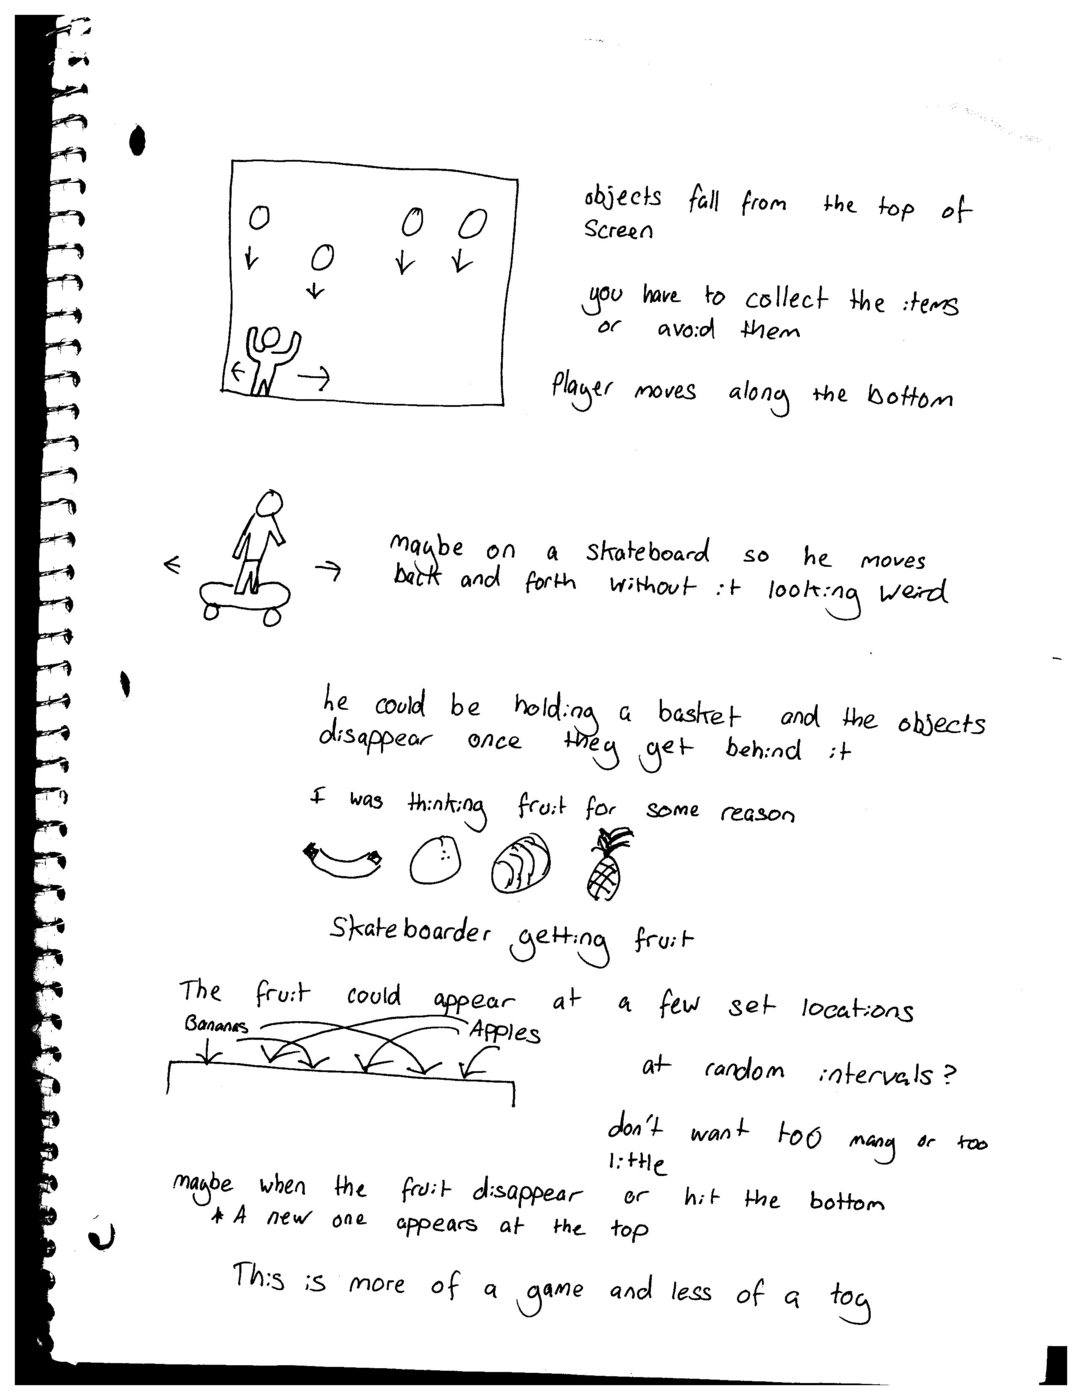 objects fall from the top of
screen
you have to collect the items
or avoid them
Player moves along the bottom
maybe on a skateboard so he moves
back and forth without it looking weird
he could be holding a basket and the objects
disappear once they get behind it
I was thinking fruit for some reason
Skateboarder getting fruit
The fruit could appear at a few set locations
Bananas
Apples
at random intervals?
don't want too many or too
little
maybe when the fruit disappear or hit the bottom
* A new one appears at the top
This is more of a game and less of a toy